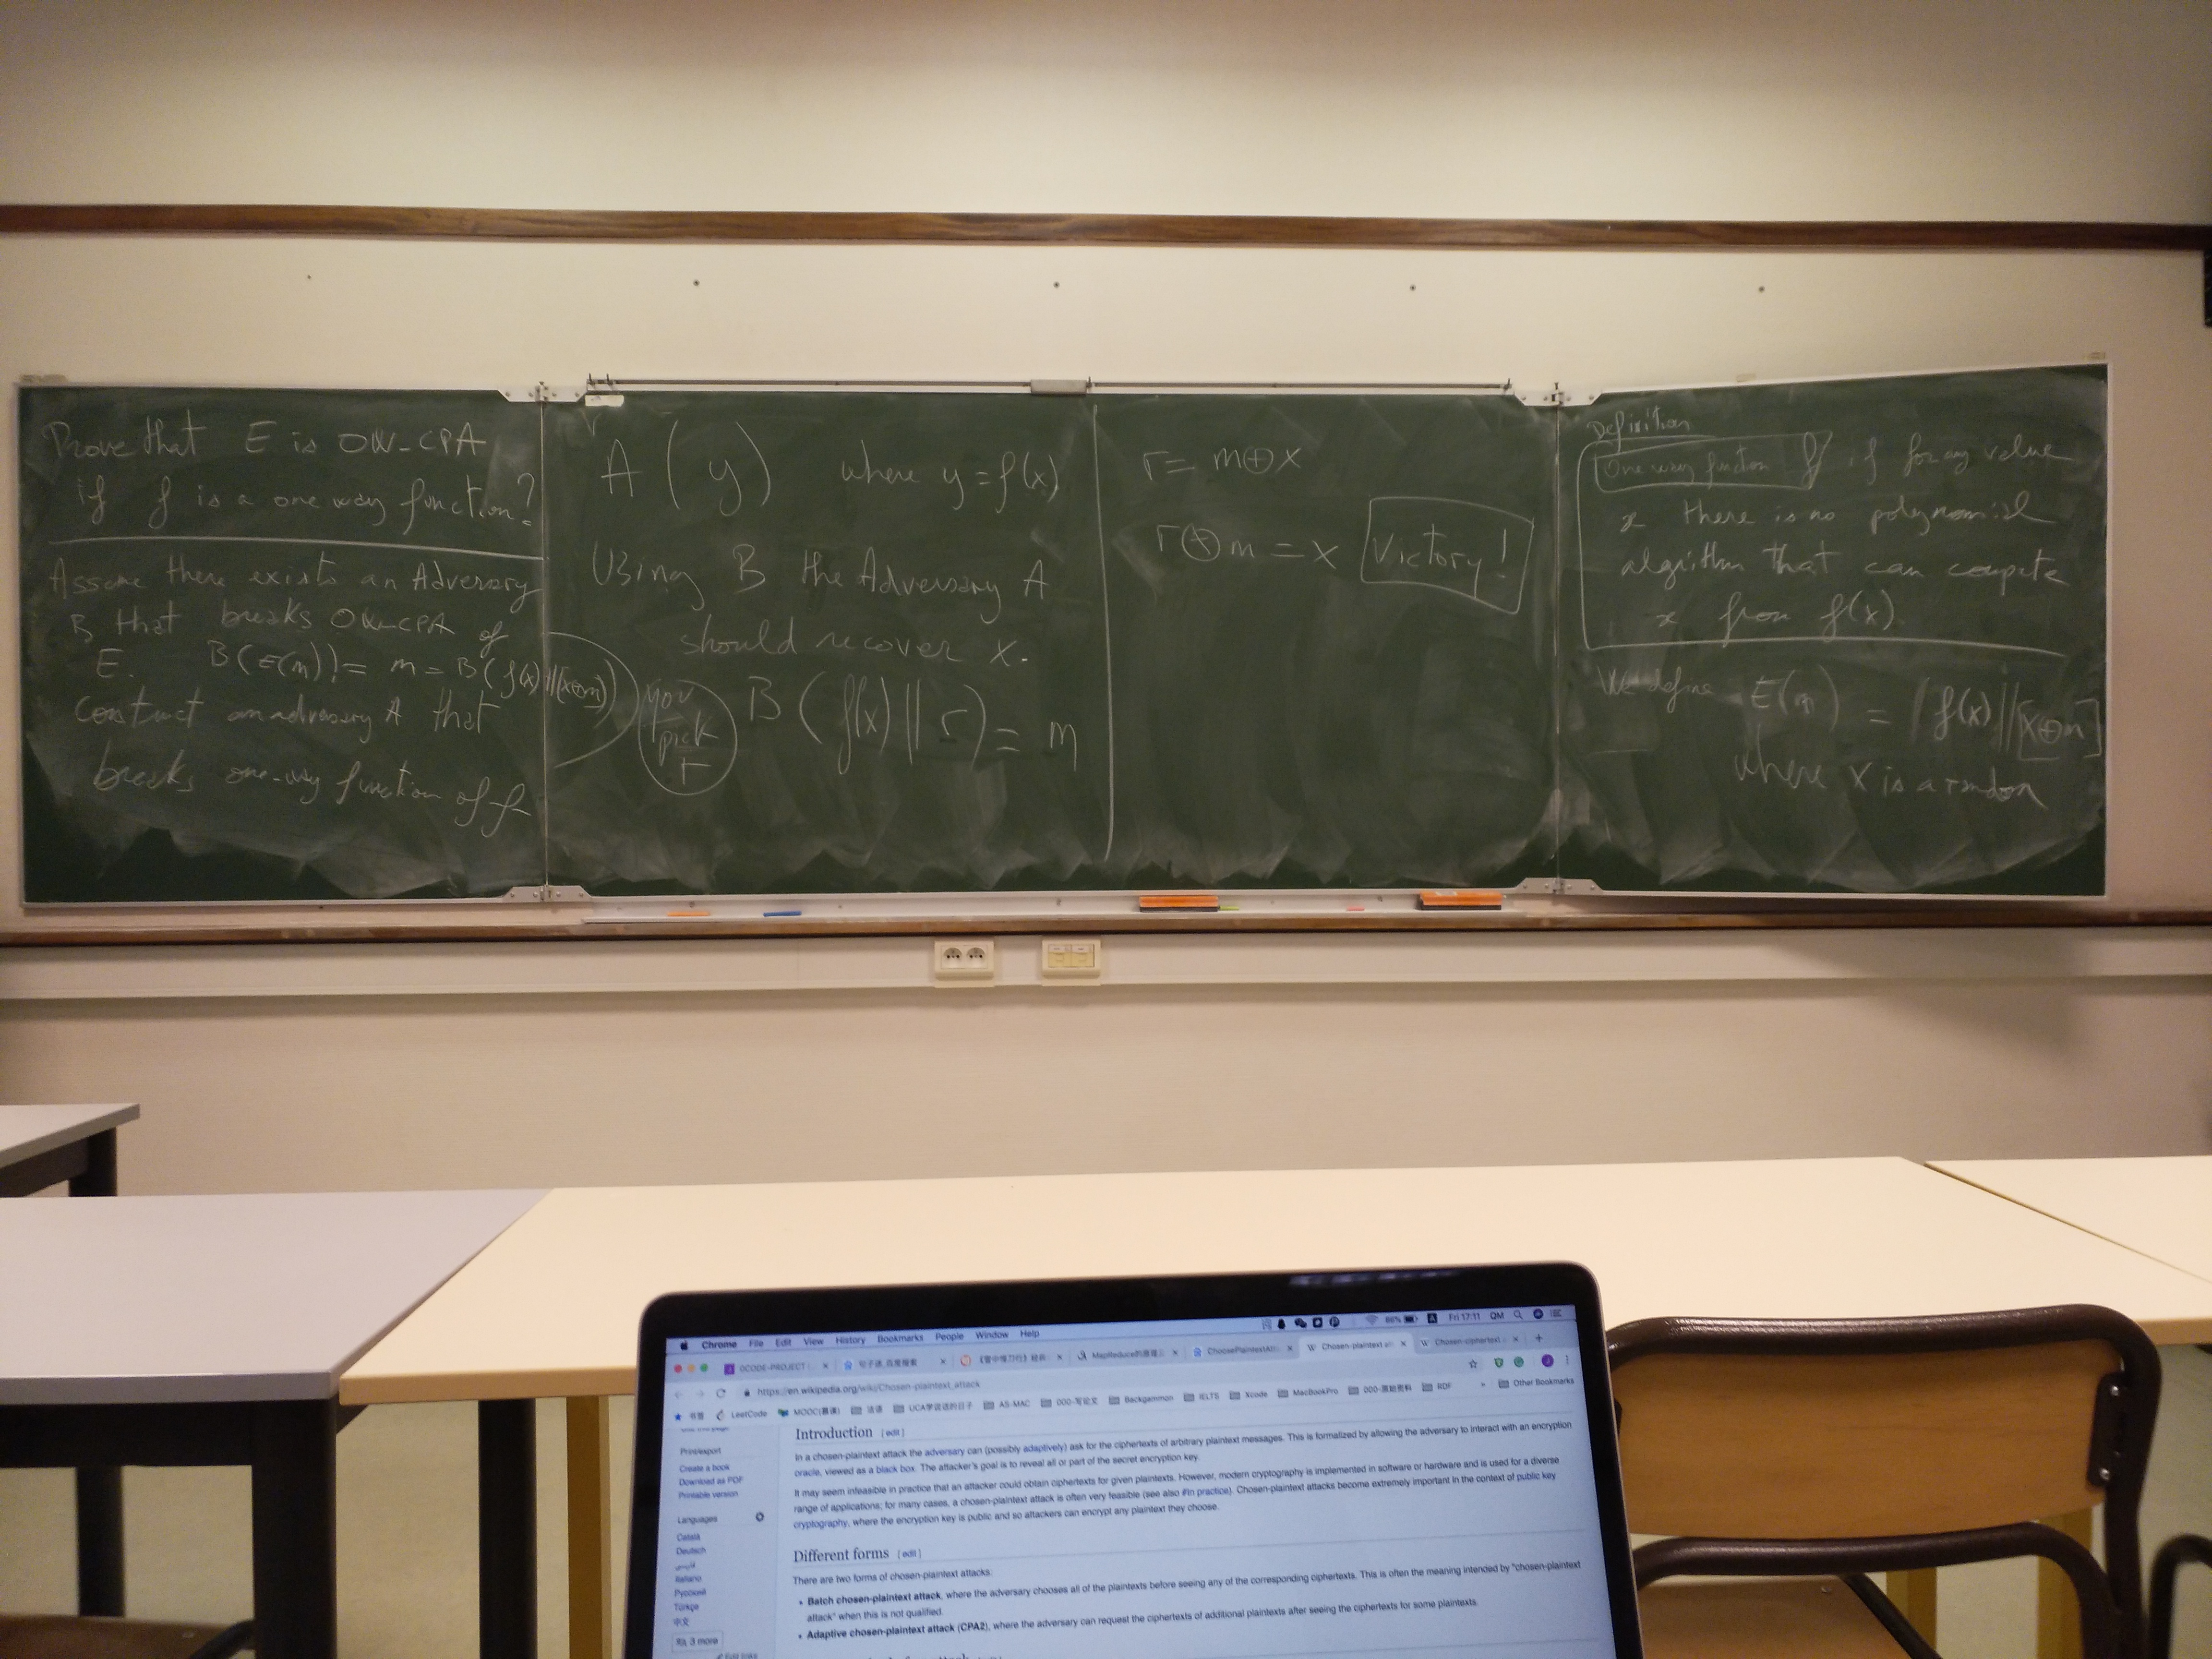 Prove that E is OW-CPA
if f is a one way function?
Assume there exists an Adversary
B that breaks OW-CPA of
E. B(E(m)) = m = B(f(x)||(x⊕m))
Construct an adversary A that
breaks one-way function of f
A(y) where y = f(x)
Using B the Adversary A
should recover x.
you
pick
r
B(f(x)||r) = m
r = m⊕x
r⊕m = x Victory!
Definition
One way function f if for any value
x there is no polynomial
algorithm that can compute
x from f(x).
We define E(m) = f(x)||[x⊕m]
where x is a random
Chrome File Edit View History Bookmarks People Window Help
86% Fri 17:11 QM
OCODE-PROJECT
ChoosePlaintextAtt
Chosen-plaintext at
Chosen-ciphertext
https://en.wikipedia.org/wiki/Chosen-plaintext_attack
书签 LeetCode MOOC(慕课) 法语 UCA学说话的日子 AS-MAC 000-写论文 Backgammon IELTS Xcode MacBookPro 000-原始资料 RDF » Other Bookmarks
Print/export
Create a book
Download as PDF
Printable version
Languages
Català
Deutsch
فارسی
Italiano
Русский
Türkçe
中文
3 more
Edit links
Introduction [ edit ]
In a chosen-plaintext attack the adversary can (possibly adaptively) ask for the ciphertexts of arbitrary plaintext messages. This is formalized by allowing the adversary to interact with an encryption
oracle, viewed as a black box. The attacker's goal is to reveal all or part of the secret encryption key.
It may seem infeasible in practice that an attacker could obtain ciphertexts for given plaintexts. However, modern cryptography is implemented in software or hardware and is used for a diverse
range of applications; for many cases, a chosen-plaintext attack is often very feasible (see also #In practice). Chosen-plaintext attacks become extremely important in the context of public key
cryptography, where the encryption key is public and so attackers can encrypt any plaintext they choose.
Different forms [ edit ]
There are two forms of chosen-plaintext attacks:
• Batch chosen-plaintext attack, where the adversary chooses all of the plaintexts before seeing any of the corresponding ciphertexts. This is often the meaning intended by "chosen-plaintext
attack" when this is not qualified.
• Adaptive chosen-plaintext attack (CPA2), where the adversary can request the ciphertexts of additional plaintexts after seeing the ciphertexts for some plaintexts.